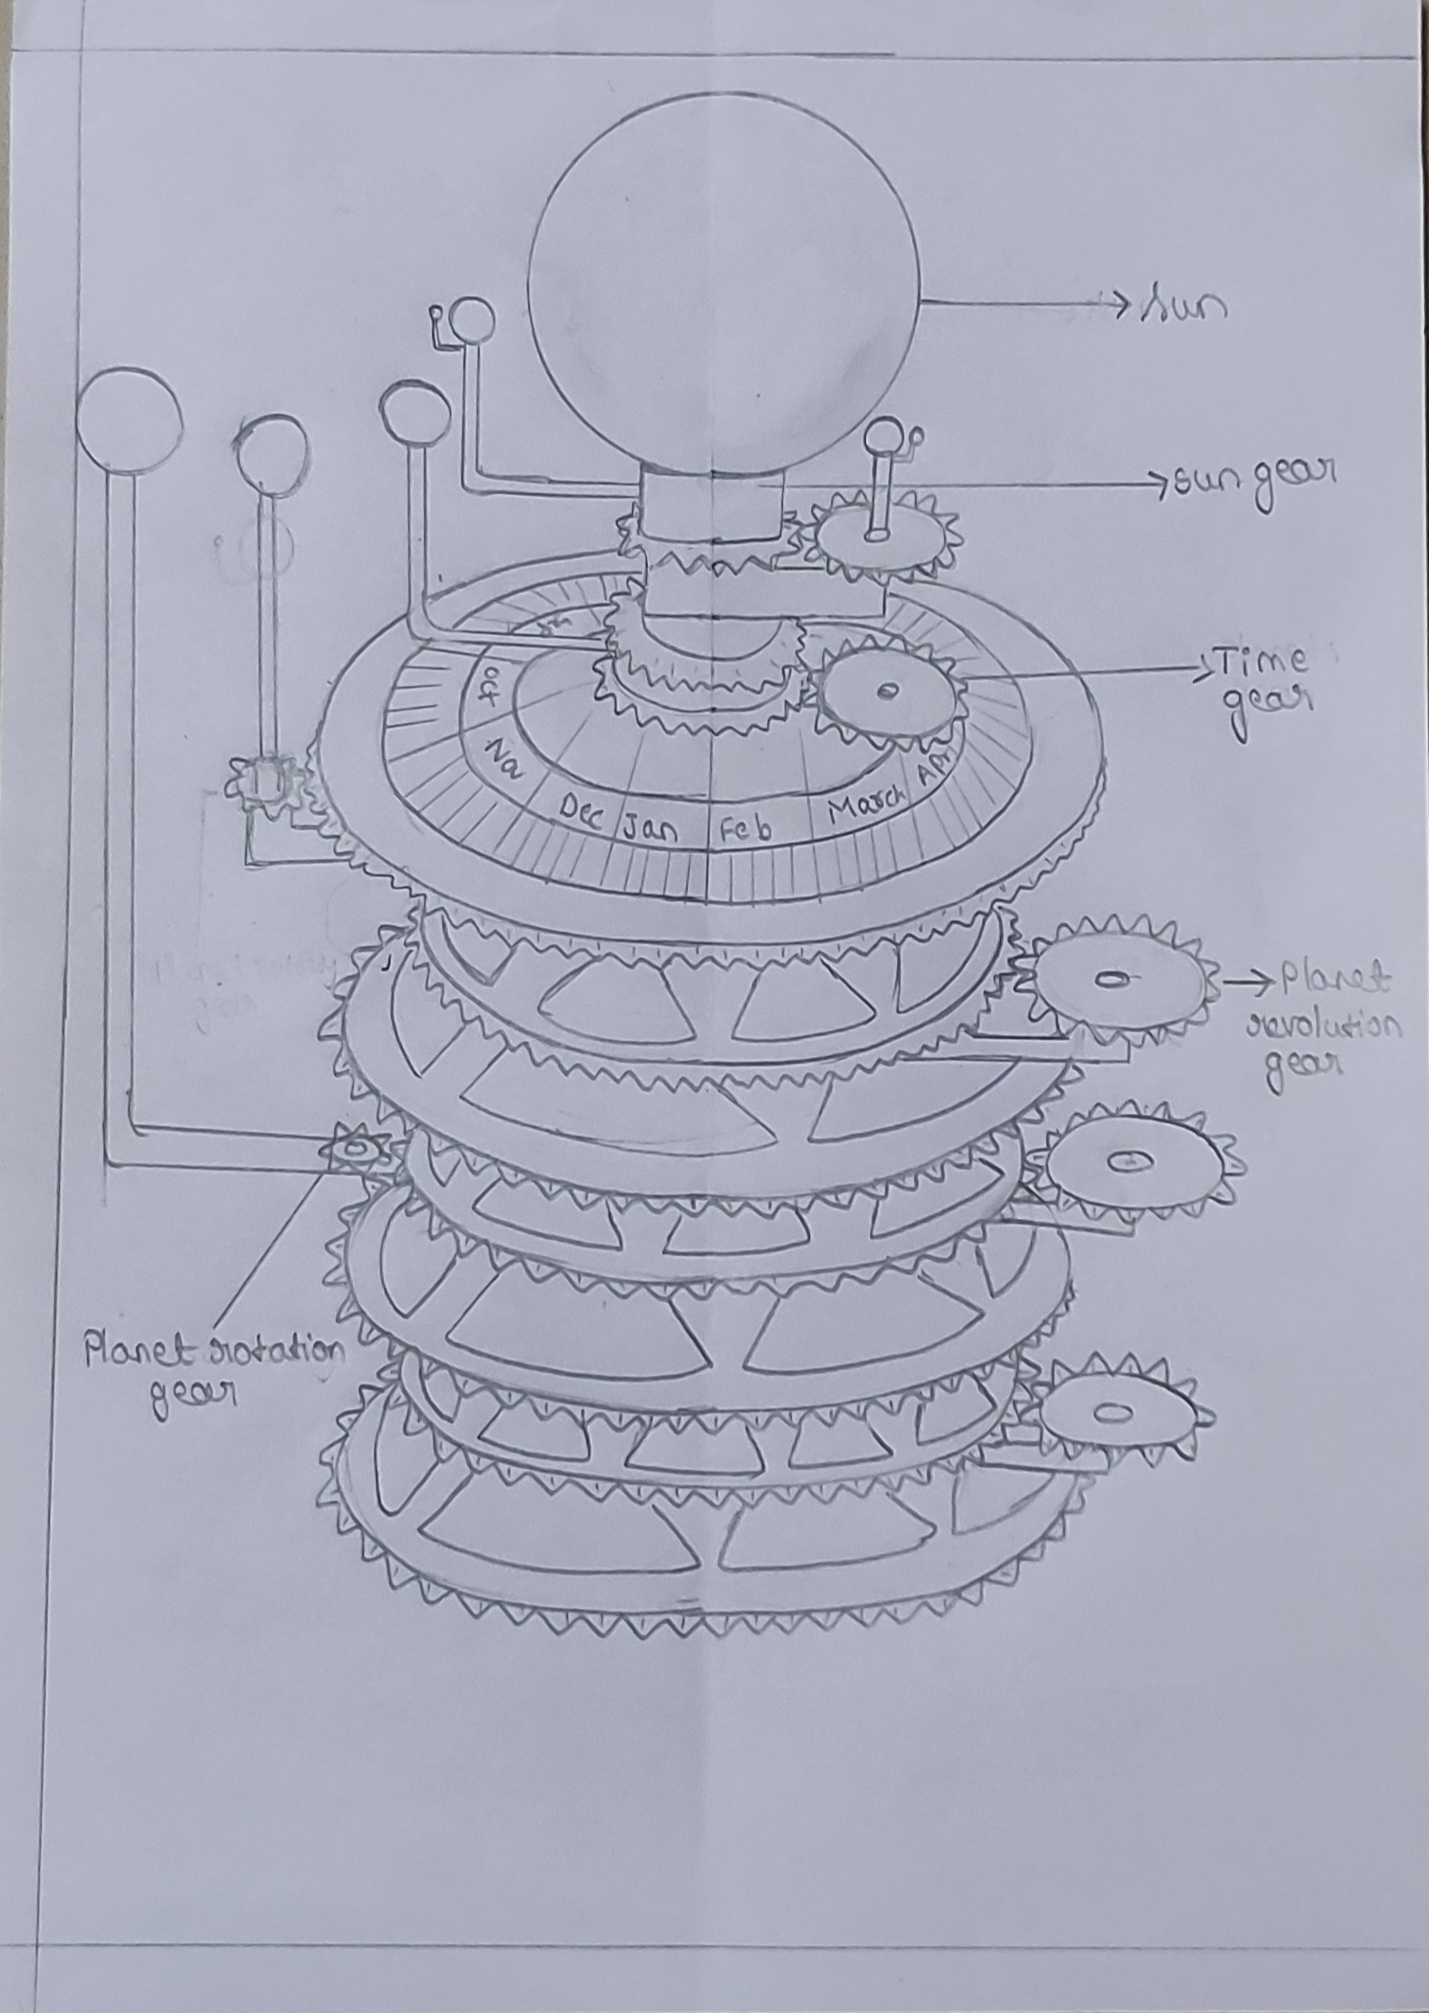 sun
sun gear
Time
gear
oct
Nov
Dec
Jan
Feb
March
Apr
Planet
revolution
gear
Planet rotation
gear